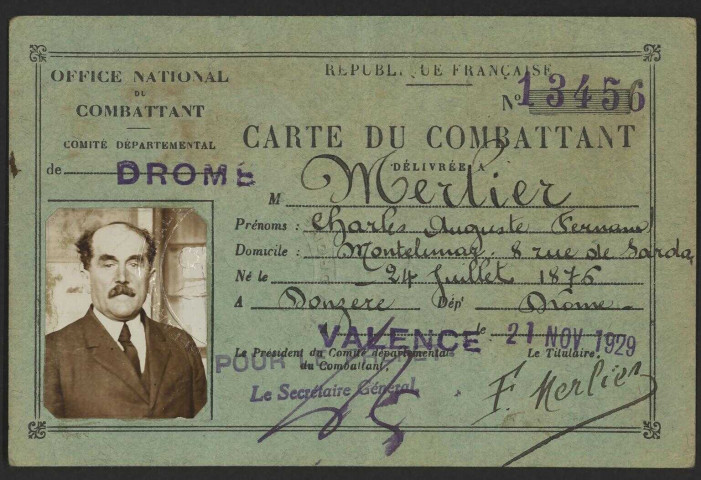 OFFICE NATIONAL
DU
COMBATTANT
COMITÉ DÉPARTEMENTAL
de DROME
RÉPUBLIQUE FRANÇAISE
N° 13456
CARTE DU COMBATTANT
DÉLIVRÉE A
M Merlier
Prénoms : Charles Auguste Fernand
Domicile : Montelimar. 8 rue de
Né le 24 Juillet 1876
A Donzère Dépt Drôme
VALENCE le 21 NOV 1929
Le Président du Comité départemental
du Combattant,
Le Titulaire,
POUR
Le Secrétaire Général
F. Merlier